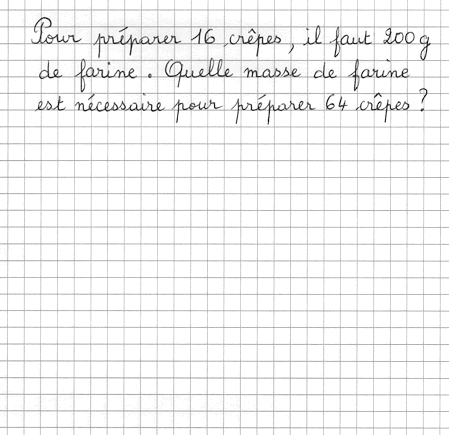 Pour préparer 16 crêpes, il faut 200 g
de farine. Quelle masse de farine
est nécessaire pour préparer 64 crêpes ?